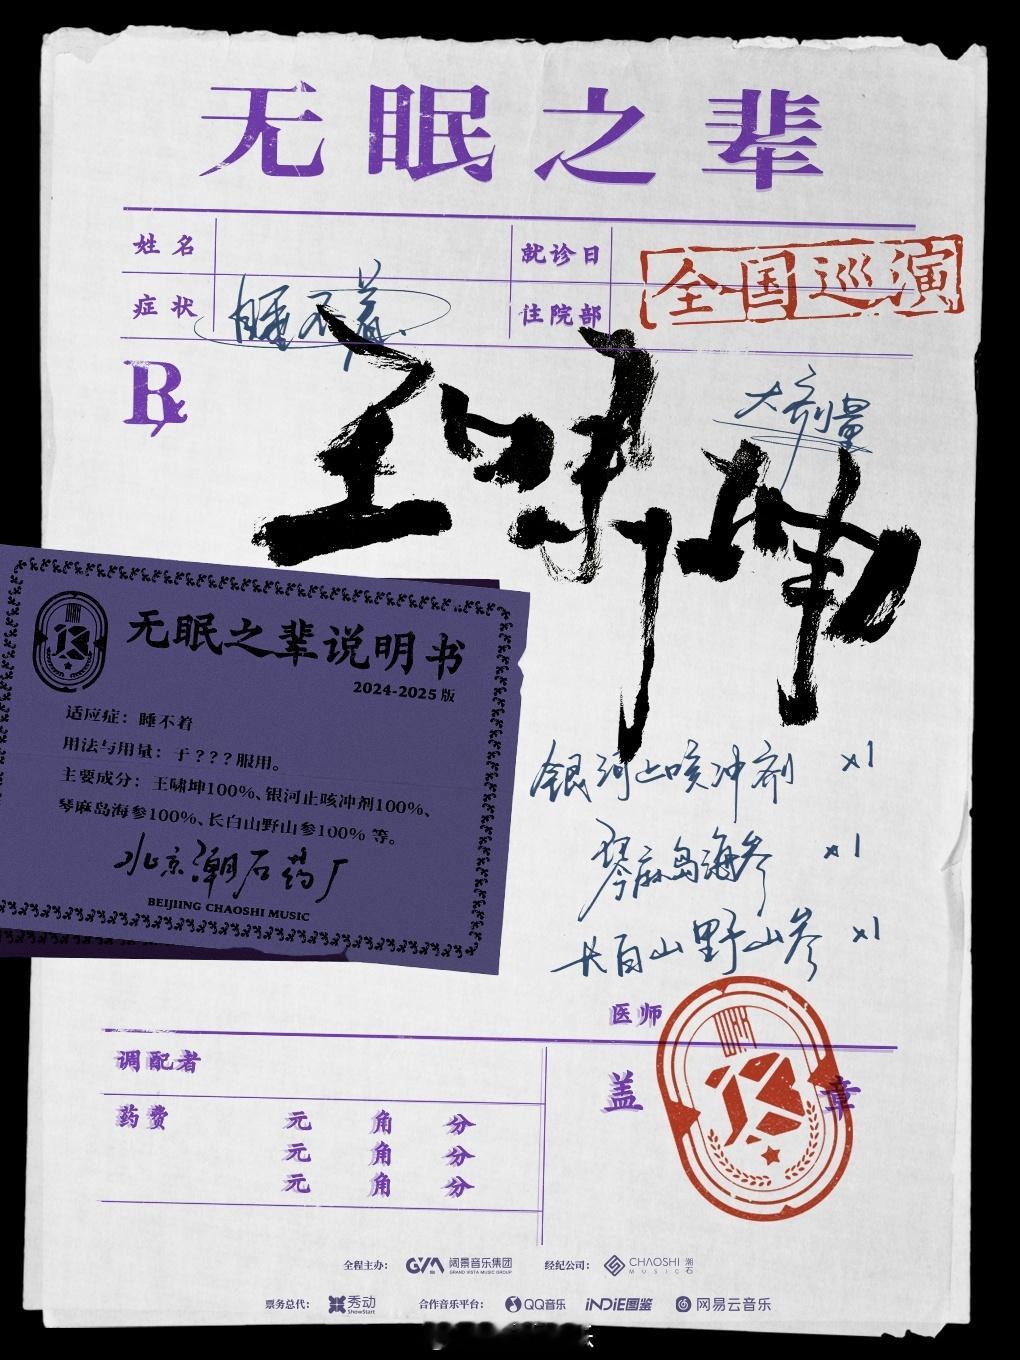 无眠之辈
姓名
就诊日
全国巡演
症状
睡不着
住院部
R
大剂量
王啸坤
无眠之辈说明书
2024-2025版
适应症：睡不着
用法与用量：于???服用。
主要成分：王啸坤100%、银河止咳冲剂100%、
琴麻岛海参100%、长白山野山参100% 等。
北京潮石药厂
BEIJIING CHAOSHI MUSIC
银河止咳冲剂 x1
琴麻岛海参 x1
长白山野山参 x1
医师
调配者
盖章
药费 元 角 分
元 角 分
元 角 分
全程主办： GVM 阔景音乐集团 GRAND VISTA MUSIC GROUP 经纪公司： CHAOSHI MUSIC 潮石
票务总代： 秀动 ShowStart 合作音乐平台： QQ音乐 iNDiE图鉴 网易云音乐